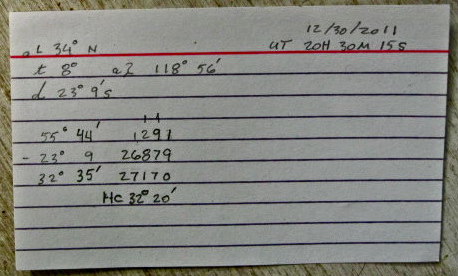 12/30/2011
aL 34° N
UT 20H 30M 15s
t 8° aZ 118° 56'
d 23° 9's
1 1
55° 44' 1291
- 23° 9 26879
32° 35' 27170
Hc 32° 20'